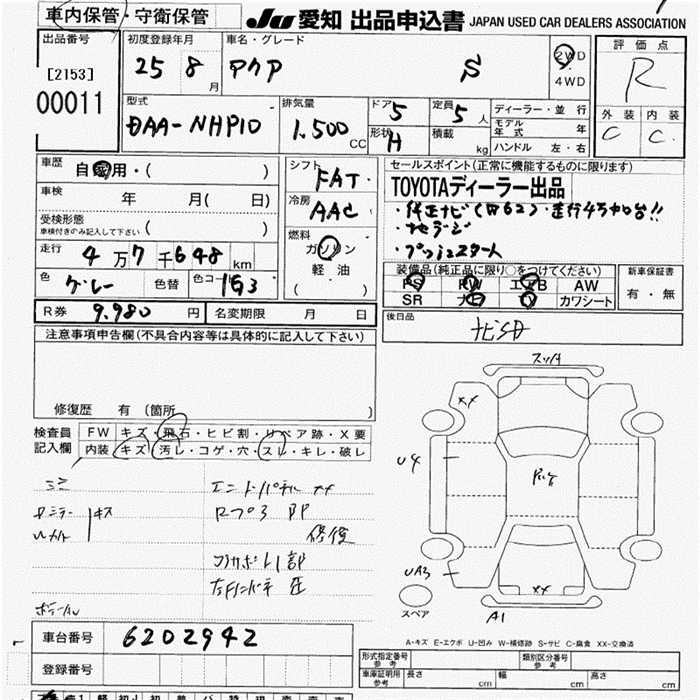 車内保管・守衛保管
JU 愛知 出品申込書 JAPAN USED CAR DEALERS ASSOCIATION
出品番号
[2153]
00011
初度登録年月
25 8月
車名・グレード
アクア S
2WD
4WD
評価点
R
外装 内装
C C
型式
DAA-NHP10
排気量
1.500 CC
ドア 5
形状 H
定員 5人
積載 kg
ディーラー・並行
モデル年式 年
ハンドル 左・右
車歴 自家用・( )
車検 年 月( 日)
受検形態
車検付きのみ記入して下さい ( )
走行 4万7千648km
色 グレー 色替 色コード 1G3
シフト FAT
冷房 AAC
燃料
ガソリン
軽油
( )
セールスポイント(正常に機能するものに限ります)
TOYOTAディーラー出品
・純正ナビ(W62)・走行4万km台!!
・地デジ
・プッシュスタート
装備品(純正品に限り○をつけてください)
PS PW エアB AW
SR ナビ TV カワシート
新車保証書
有・無
R券 9.980円 名変期限 月 日
後日品
ナビSD
注意事項申告欄(不具合内容等は具体的に記入して下さい)
修復歴 有(箇所 )
検査員記入欄
FW キズ・飛石・ヒビ割・リペア跡・X要
内装 キズ・汚レ・コゲ・穴・スレ・キレ・破レ
エンドパネル XX
修復
XX
U4
UA3
XX
A1
スペア
A-キズ E-エクボ U-凹み W-補修跡 S-サビ C-腐食 XX-交換済
車台番号 6202942
登録番号
形式指定番号 参考
類別区分番号 参考
車庫証明用 参考 長さ cm 幅 cm 高さ cm